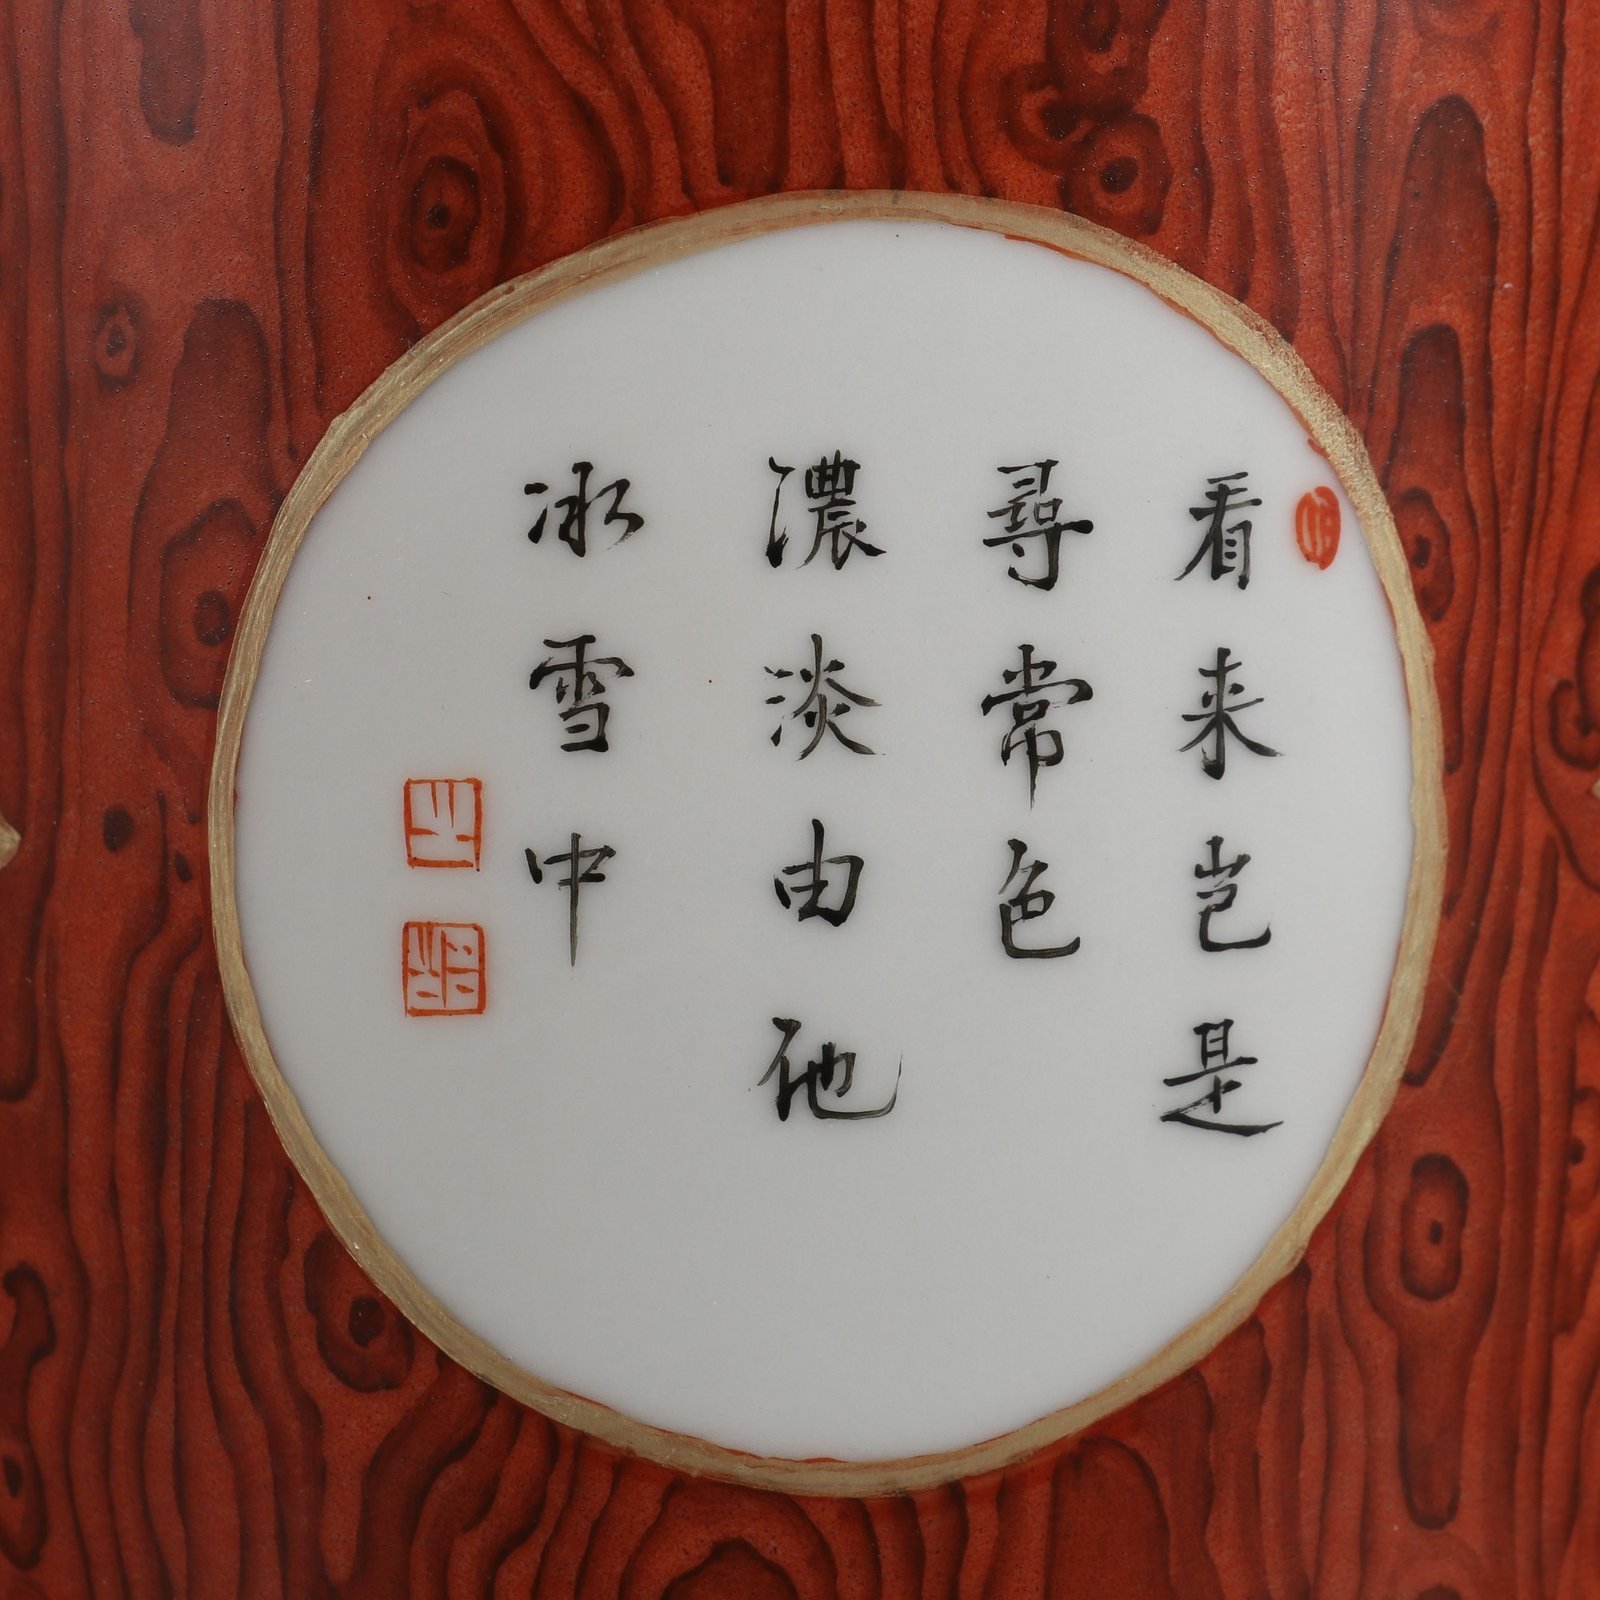 看来岂是
尋常色
濃淡由他
冰雪中